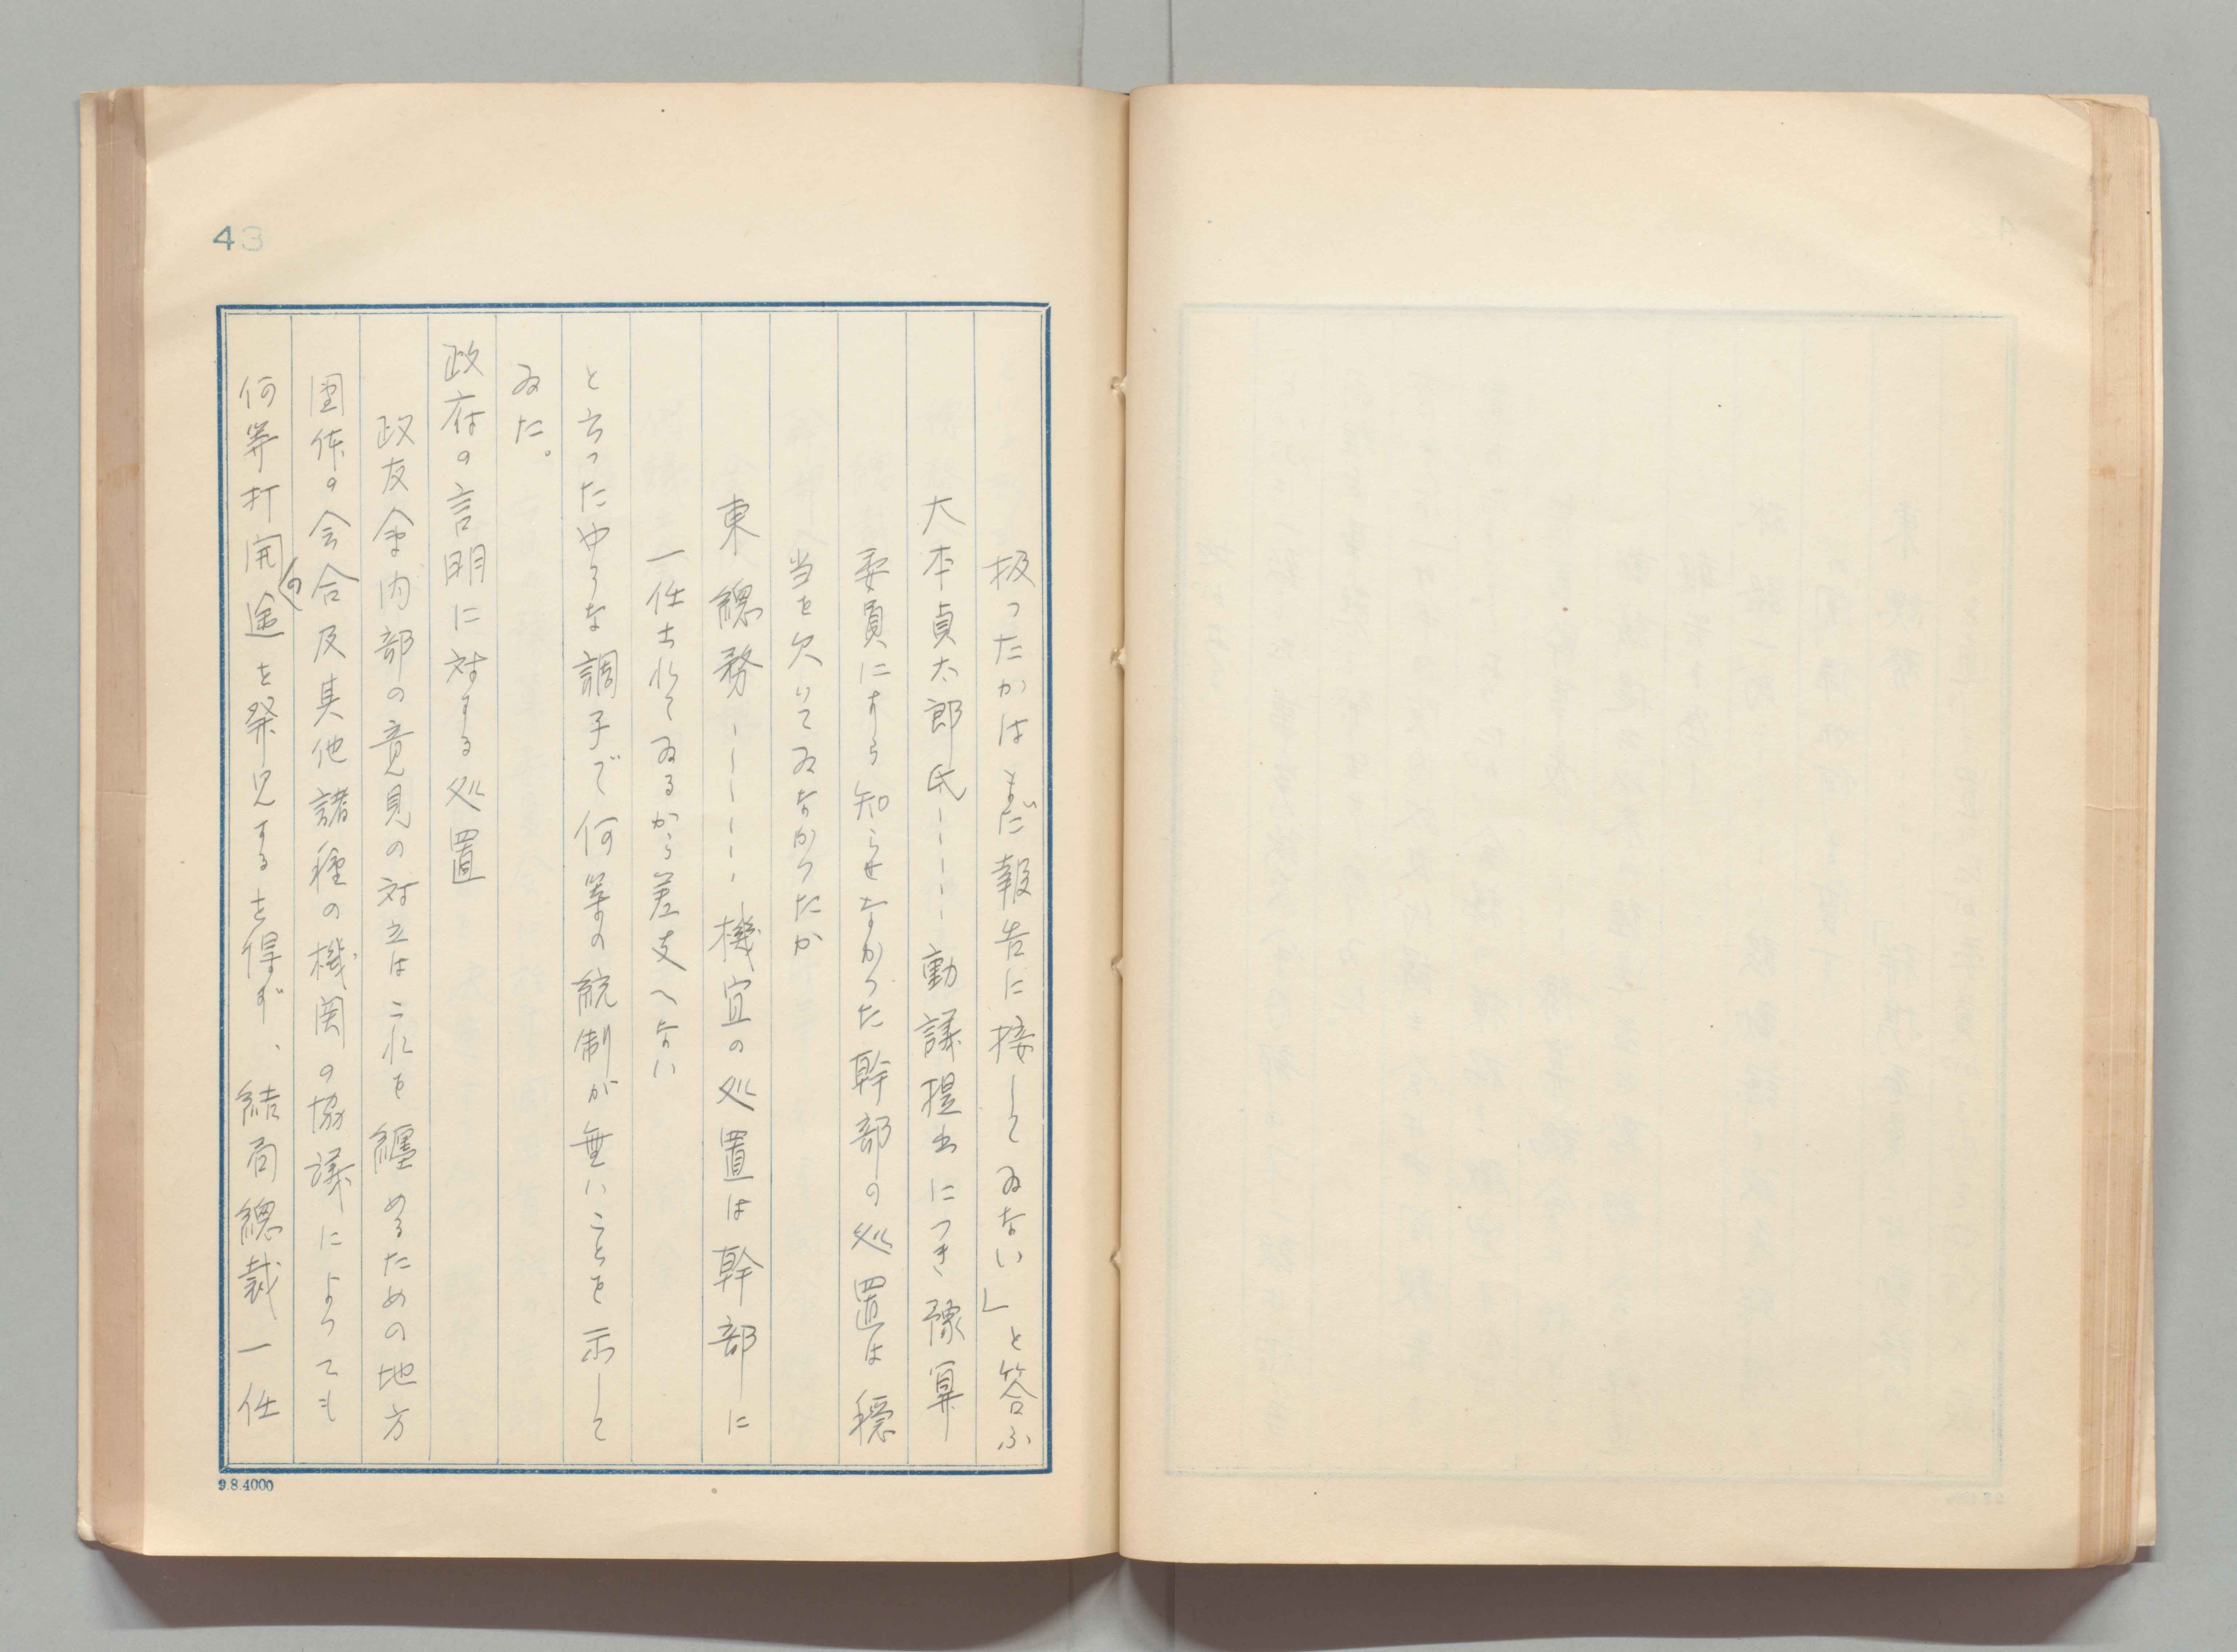 43
扱ったかはまだ報告に接してゐない」と答ふ
大本貞太郎氏———動議提出につき豫算
委員にすら知らせなかった幹部の処置は穏
当を欠いてゐなかったか
東總務————機宜の処置は幹部に
一任されてゐるから差支へない
と言ったやうな調子で何等の統制が無いことを示して
ゐた。
政府の言明に対する処置
政友会内部の意見の対立はこれを纒めるための地方
團体の会合及其他諸種の機関の協議によっても
何等打開の途を発見するを得ず、結局總裁一任
9.8.4000